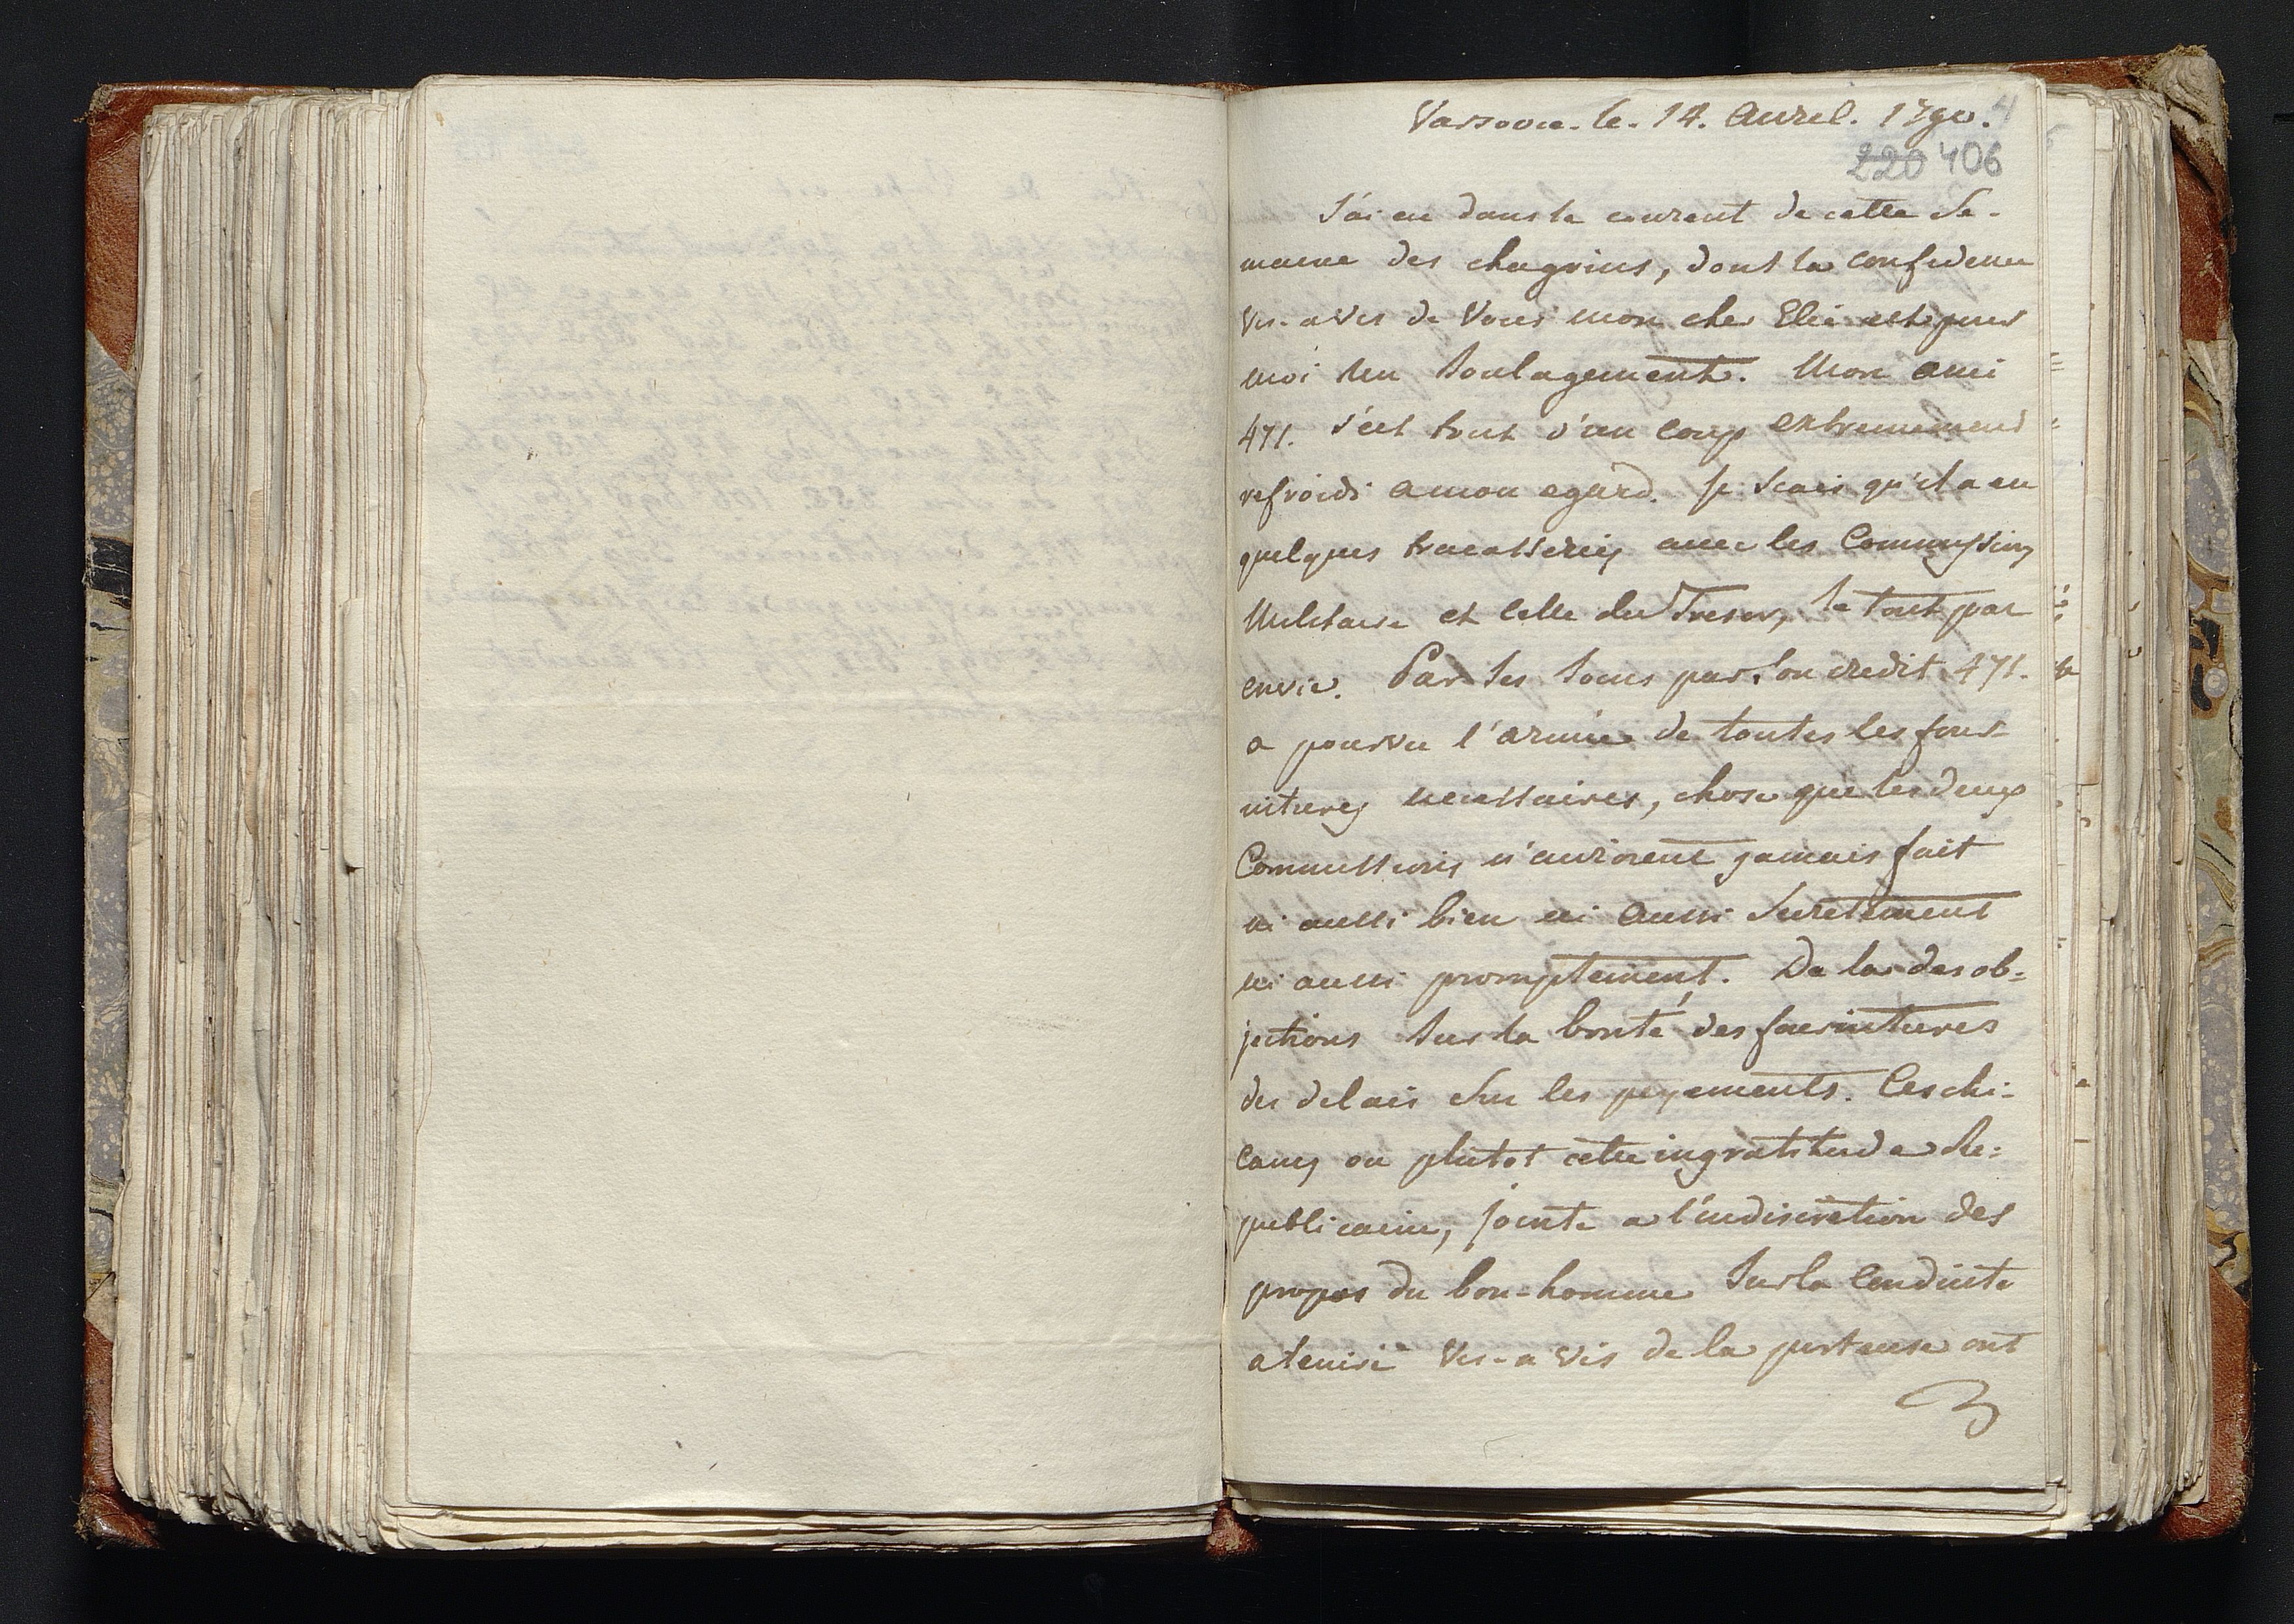 Varsovie. le. 14. Avril. 1790.
220 406
J'ai eu dans le courent de cette Se-
maine des chagrins, dont la confidence
vis-a vis de Vous mon cher Elie est pour
moi un soulagement. Mon ami
471. s'est tout d'un coup extremement
refroidi a mon egard. Je scais qu'il a eu
quelques tracasseries avec les Commissions
Militaire et celle du Tresor, le tout par
envie. Par ses soins par son credit 471.
a pourvu l'armée de toutes les four
nitures necessaires, chose que les deux
Commissions n'auroient jamais fait
ni aussi bien ni aussi Surettement
ni aussi promptement. De la des ob-
jections sur la bonté des fournitures
des delais sur les peyements. Ces chi-
canes ou plutot cette ingratitude Re-
publicaine, jointe a l'indiscretion des
propos du bon-homme sur la conduite
a tenir vis-a vis de la porteuse ont